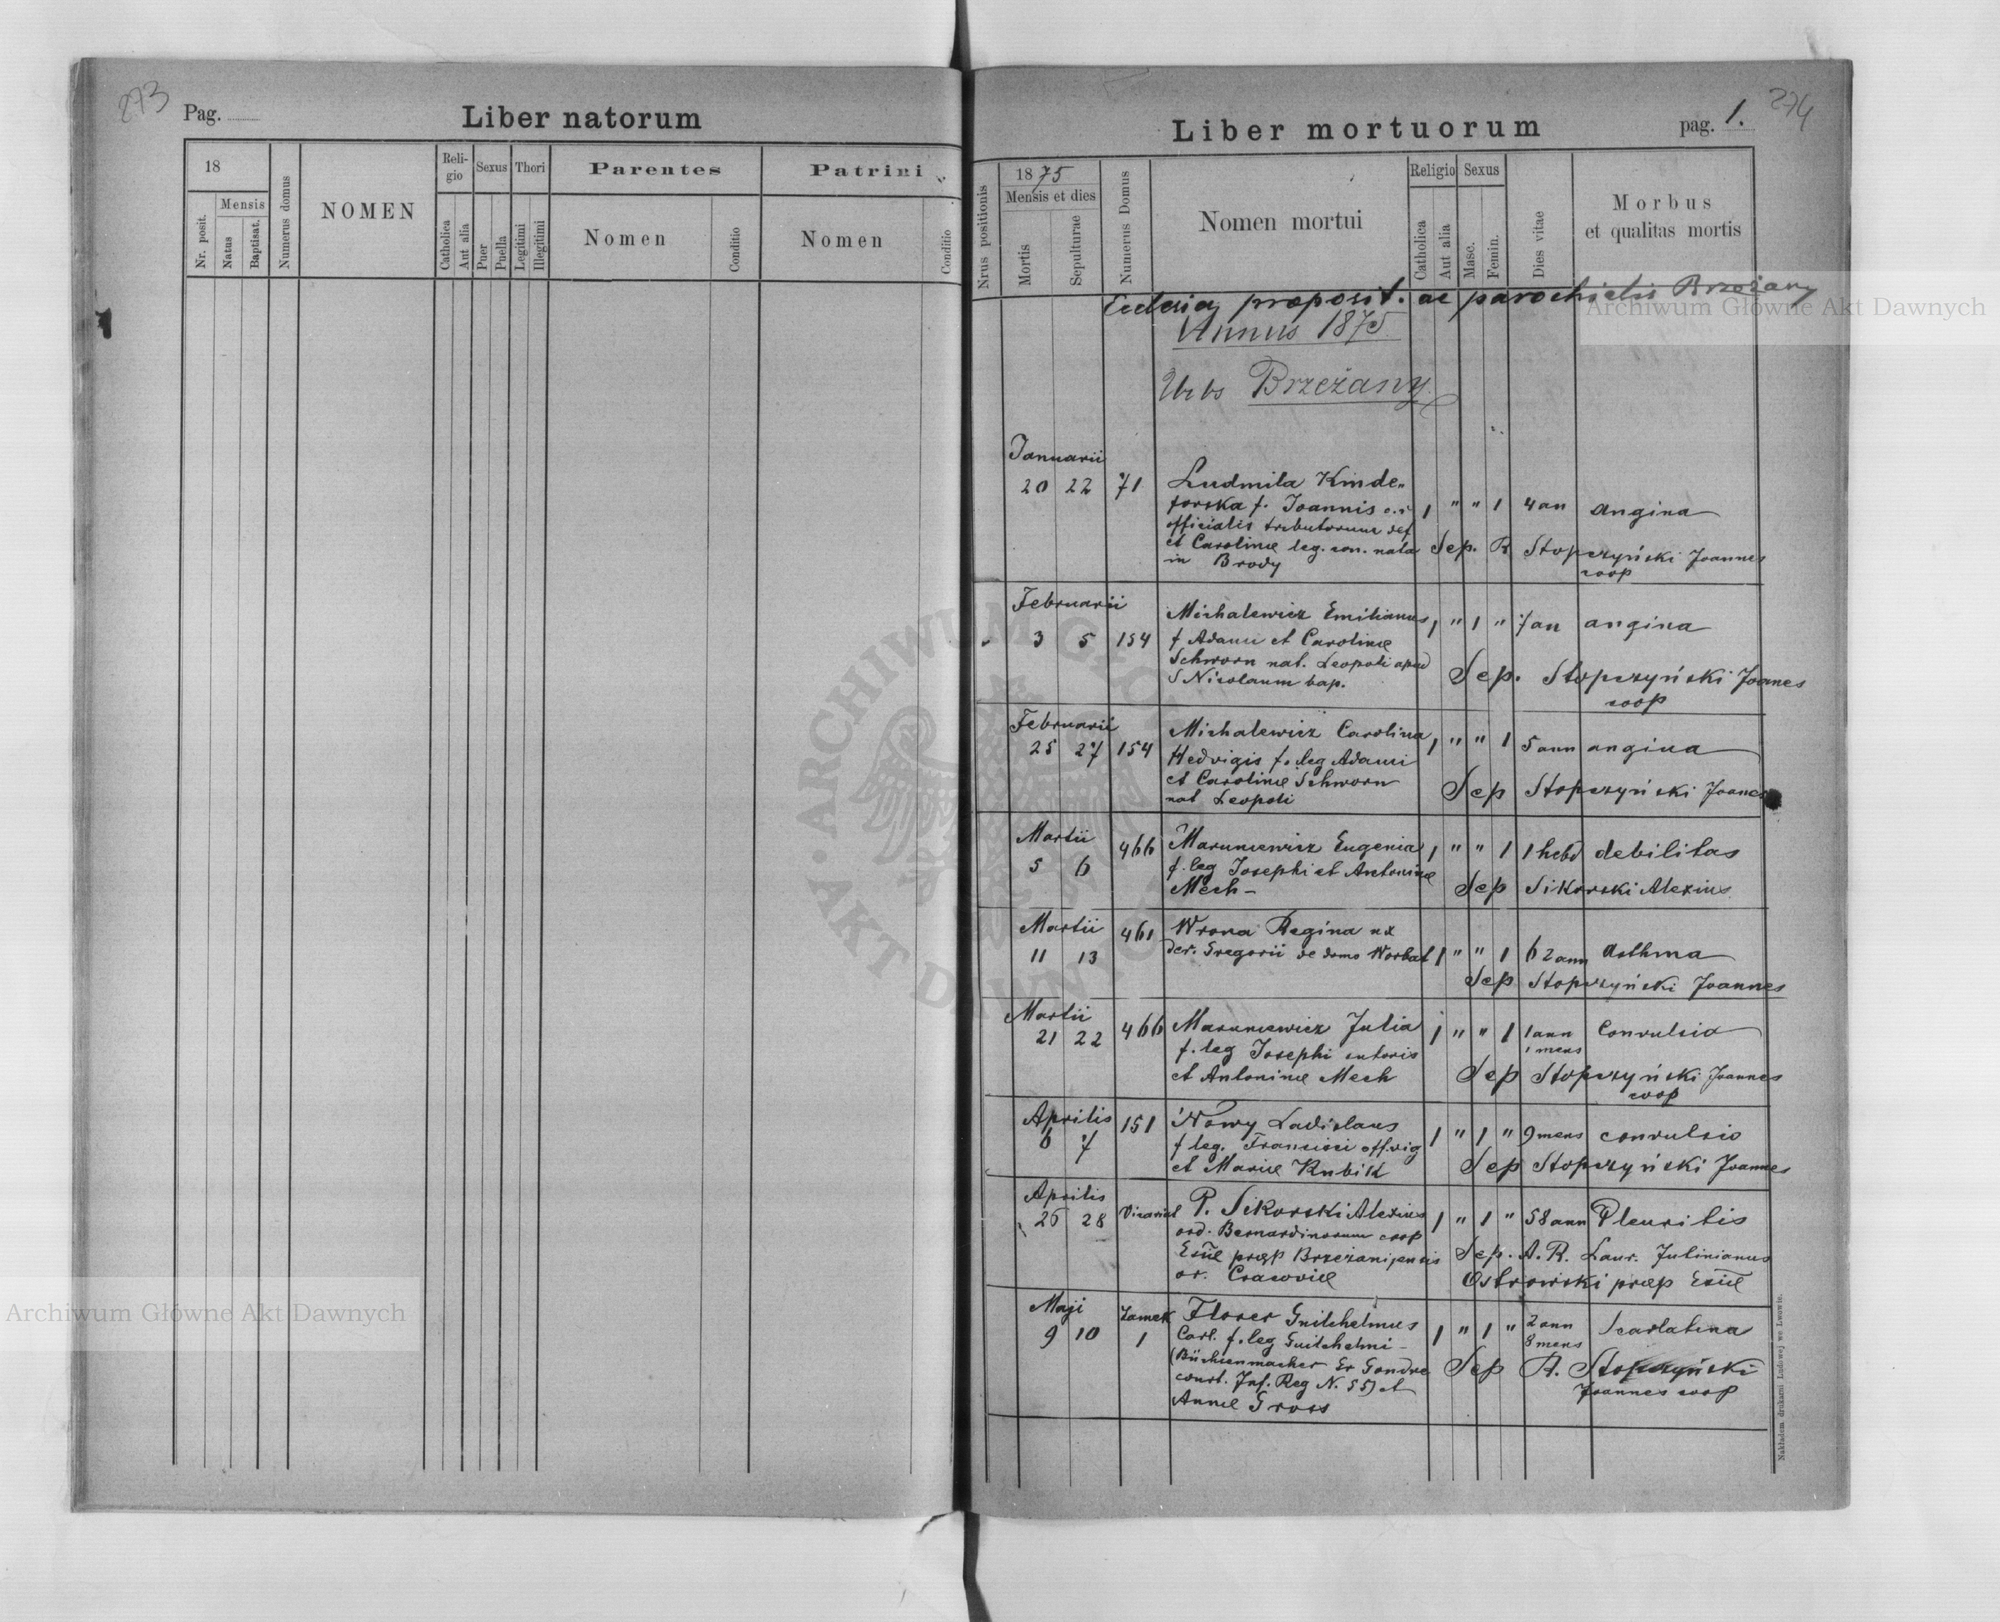 273
Pag.
Liber natorum
18
Mensis
Nr. posit.
Natus
Baptisat.
Numerus domus
NOMEN
Reli-
gio
Catholica
Aut alia
Sexus
Puer
Puella
Thori
Legitimi
Illegitimi
Parentes
Nomen
Conditio
Patrini
Nomen
Conditio
274
Liber mortuorum
pag. 1.
Nrus positionis
1875
Mensis et dies
Mortis
Sepulturae
Numerus Domus
Nomen mortui
Religio
Catholica
Aut alia
Sexus
Masc.
Femin.
Dies vitae
Morbus
et qualitas mortis
præposit. ac parochialis Brzeżany
Annus 1875.
Urbs Brzeżany
Januarii
20 22 71 Ludmila Kinde„
forska f. Joannis
officialis tributorum def
et Carolinæ leg. con. nata
in Brody
1 " " 1 4 an angina
Sep. R Stopczyński Joannes
coop
Februarii
3 5 154 Michalewicz Emilianus
f Adami et Carolinæ
Schworn nat. Leopoli apud
S Nicolaum bap.
1 " 1 " 7 an angina
Sep. Stopczyński Joanes
coop
Februarii
25 27 154 Michalewicz Carolina
Hedvigis f. leg Adami
et Carolinæ Schworn
nat Leopoli
1 " " 1 5 ann angina
Sep Stopczyński Joanes
Martii
5 6 466 Maruniewicz Eugenia
f. leg Josephi et Antoninæ
Mech –
1 " " 1 1 hebd debilitas
Sep Sikorski Alexius
Martii
11 13 461 Wrona Regina ux
der. Gregorii de domo Worbat
1 " " 1 62 ann Asthma
Sep Stopczyński Joannes
Martii
21 22 466 Maruniewicz Julia
f. leg Josephi sutoris
et Antoninæ Mech
1 " " 1 1 ann
1 mens
Convulsio
Sep Stopczyński Joannes
coop
Aprilis
6 7 151 Nowy Ladislaus
f leg. Francisci off. vig
et Mariæ Kubik
1 " 1 " 9 mens convulsio
Sep Stopczyński Joannes
Aprilis
26 28 P. Sikorski Alexius
ord. Bernardinorum coop
præp Brzeżanijensis
or. Cracoviæ
1 " 1 " 58 ann Pleuritis
Sep. A. R. Laur. Julinianus
Ostrowski præp
Maji
9 10 Zamek
1
Floser Guilhelmus
Carl. f. leg Guilhelmi –
(Büchsenmacher Er Gondre
court. Inf. Reg N. 55) et
Annæ Gross
1 " 1 " 2 ann
8 mens
Scarlatina
Sep A. Stopczyński
Joannes coop
Nakładem drukarni Ludowej we Lwowie.
Archiwum Główne Akt Dawnych
Archiwum Główne Akt Dawnych
ARCHIWUM GŁÓWNE AKT DAWNYCH